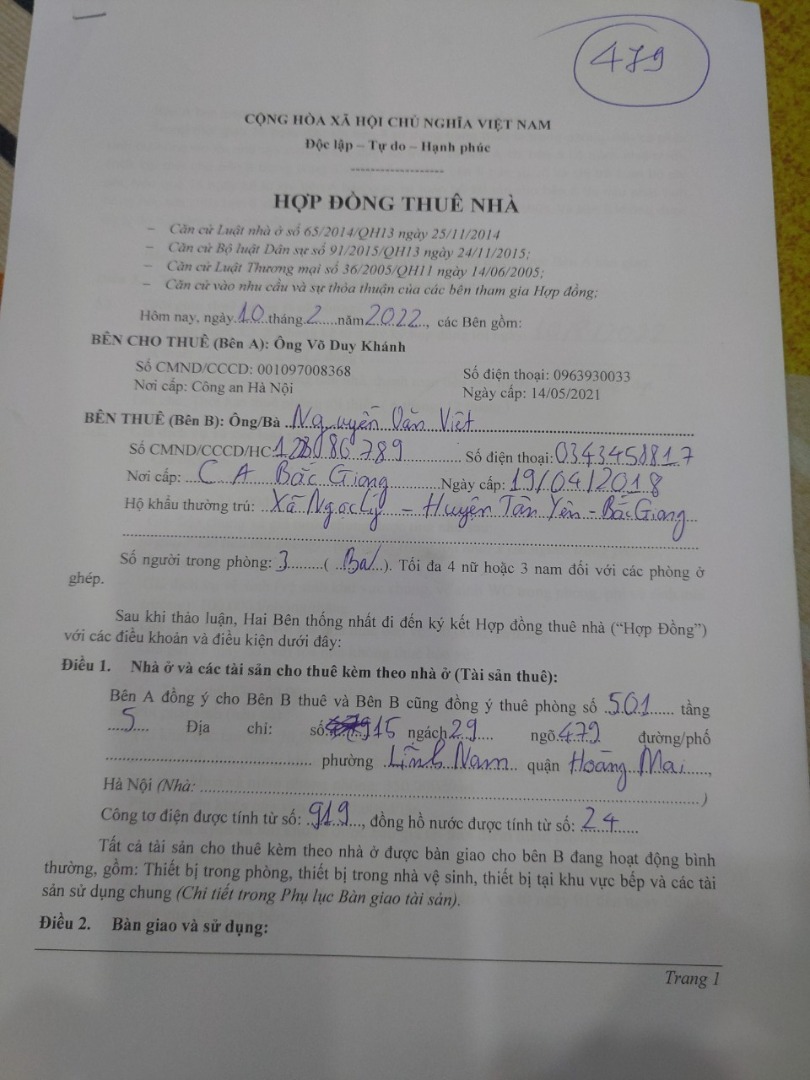 479
CỘNG HÒA XÃ HỘI CHỦ NGHĨA VIỆT NAM
Độc lập – Tự do – Hạnh phúc
HỢP ĐỒNG THUÊ NHÀ
– Căn cứ Luật nhà ở số 65/2014/QH13 ngày 25/11/2014
– Căn cứ Bộ luật Dân sự số 91/2015/QH13 ngày 24/11/2015;
– Căn cứ Luật Thương mại số 36/2005/QH11 ngày 14/06/2005;
– Căn cứ vào nhu cầu và sự thỏa thuận của các bên tham gia Hợp đồng;
Hôm nay, ngày 10 tháng 2 năm 2022, các Bên gồm:
BÊN CHO THUÊ (Bên A): Ông Võ Duy Khánh
Số CMND/CCCD: 001097008368 Số điện thoại: 0963930033
Nơi cấp: Công an Hà Nội Ngày cấp: 14/05/2021
BÊN THUÊ (Bên B): Ông/Bà Nguyễn Văn Việt
Số CMND/CCCD/HC: Số điện thoại: 0343458817
Nơi cấp: CA Bắc Giang Ngày cấp: 19/04/2018
Hộ khẩu thường trú: Xã Ngọc Lý – Huyện Tân Yên – Bắc Giang
Số người trong phòng: 3 ( Ba ). Tối đa 4 nữ hoặc 3 nam đối với các phòng ở
ghép.
Sau khi thảo luận, Hai Bên thống nhất đi đến ký kết Hợp đồng thuê nhà (“Hợp Đồng”)
với các điều khoản và điều kiện dưới đây:
Điều 1. Nhà ở và các tài sản cho thuê kèm theo nhà ở (Tài sản thuê):
Bên A đồng ý cho Bên B thuê và Bên B cũng đồng ý thuê phòng số 501 tầng
5 Địa chỉ: số 15 ngách 29 ngõ 479 đường/phố
phường Lĩnh Nam quận Hoàng Mai,
Hà Nội (Nhà: )
Công tơ điện được tính từ số: 919, đồng hồ nước được tính từ số: 24
Tất cả tài sản cho thuê kèm theo nhà ở được bàn giao cho bên B đang hoạt động bình
thường, gồm: Thiết bị trong phòng, thiết bị trong nhà vệ sinh, thiết bị tại khu vực bếp và các tài
sản sử dụng chung (Chi tiết trong Phụ lục Bàn giao tài sản).
Điều 2. Bàn giao và sử dụng:
Trang 1